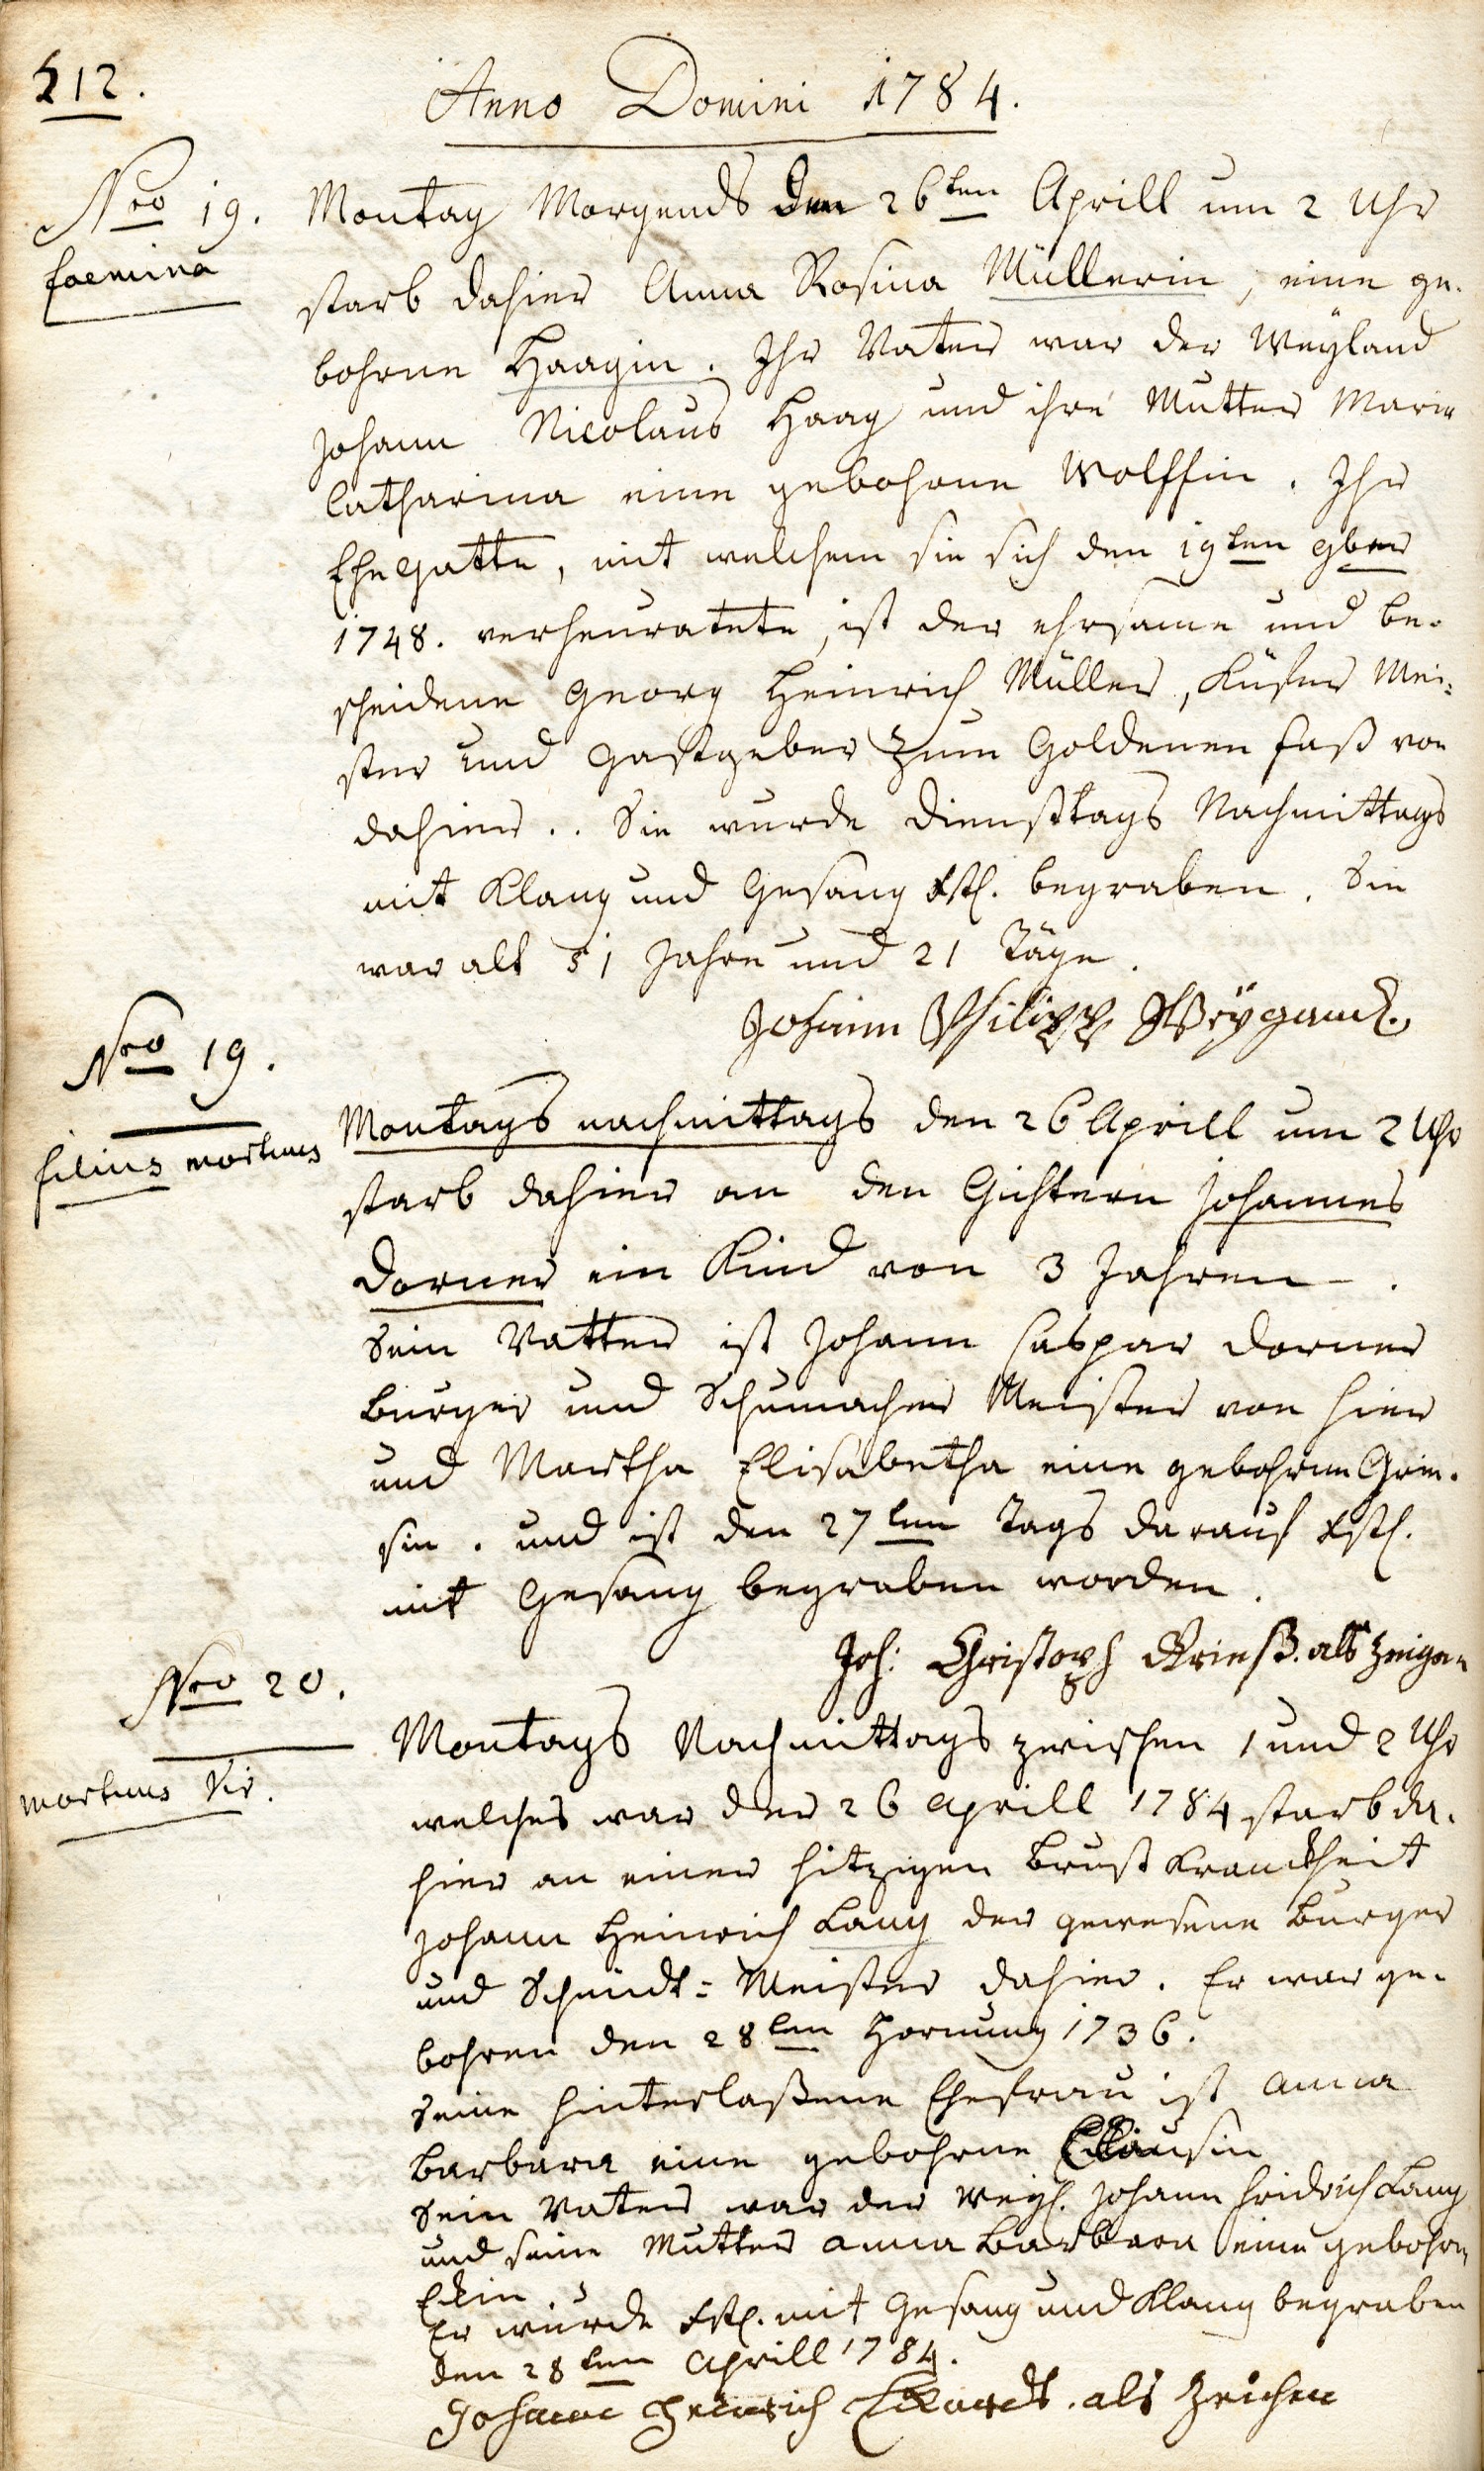 212.
Anno Domini 1784.
Nro 19.
foemina
Montag Morgends den 26ten Aprill um 2 Uhr
starb dahier Anna Rosina Müllerin, eine ge-
bohrne Haagin. Ihr Vater war der Weyland
Johann Nicolaus Haag und ihre Mutter Maria
Catharina eine gebohrne Wolffin. Ihr
Ehegatte, mit welchem sie sich den 19ten 9ber
1748. verheuratete, ist der ehrsame und be-
scheidene Georg Heinrich Müller, Küfer Mei-
ster und Gastgeber zum Goldenen Faß von
dahier.. Sie wurde Diensttags Nachmittags
mit Klang und Gesang begraben. Sie
war alt 51 Jahre und 21 Täge.
Johann Philipp Weygand.
Nro 19.
filius mortuus
Montags nachmittags den 26 Aprill um 2 Uhr
starb dahier an den Gichtern Johannes
Dorner ein Kind von 3 Jahren.
Sein Vatter ist Johann Caspar Dorner
Burger und Schumacher Meister von hier
und Martha Elisabetha eine gebohrne
und ist den 27ten Tags darauf
mit Gesang begraben worden.
Joh: Christoph Grieß. als Zeigen
Nro 20.
mortuus Vir.
Montags Nachmittags zwischen 1 und 2 Uhr
welches war der 26 Aprill 1784 starb da-
hier an einer hitzigen Brust Kranckheit
Johann Heinrich Lang der gewesene Burger
und Schmidt-Meister dahier. Er war ge-
bohren den 28ten Hornung 1736.
Seine hinterlaßene Ehefrau ist Anna
Barbara eine gebohrne
Sein Vater war der Weyl. Johann Fridrich Lang
und seine Mutter Anna Barbara eine gebohrn
Eckin.
Er wurde mit Gesang und Klang begraben
den 28ten Aprill 1784.
Johann Heinrich als Zeichen